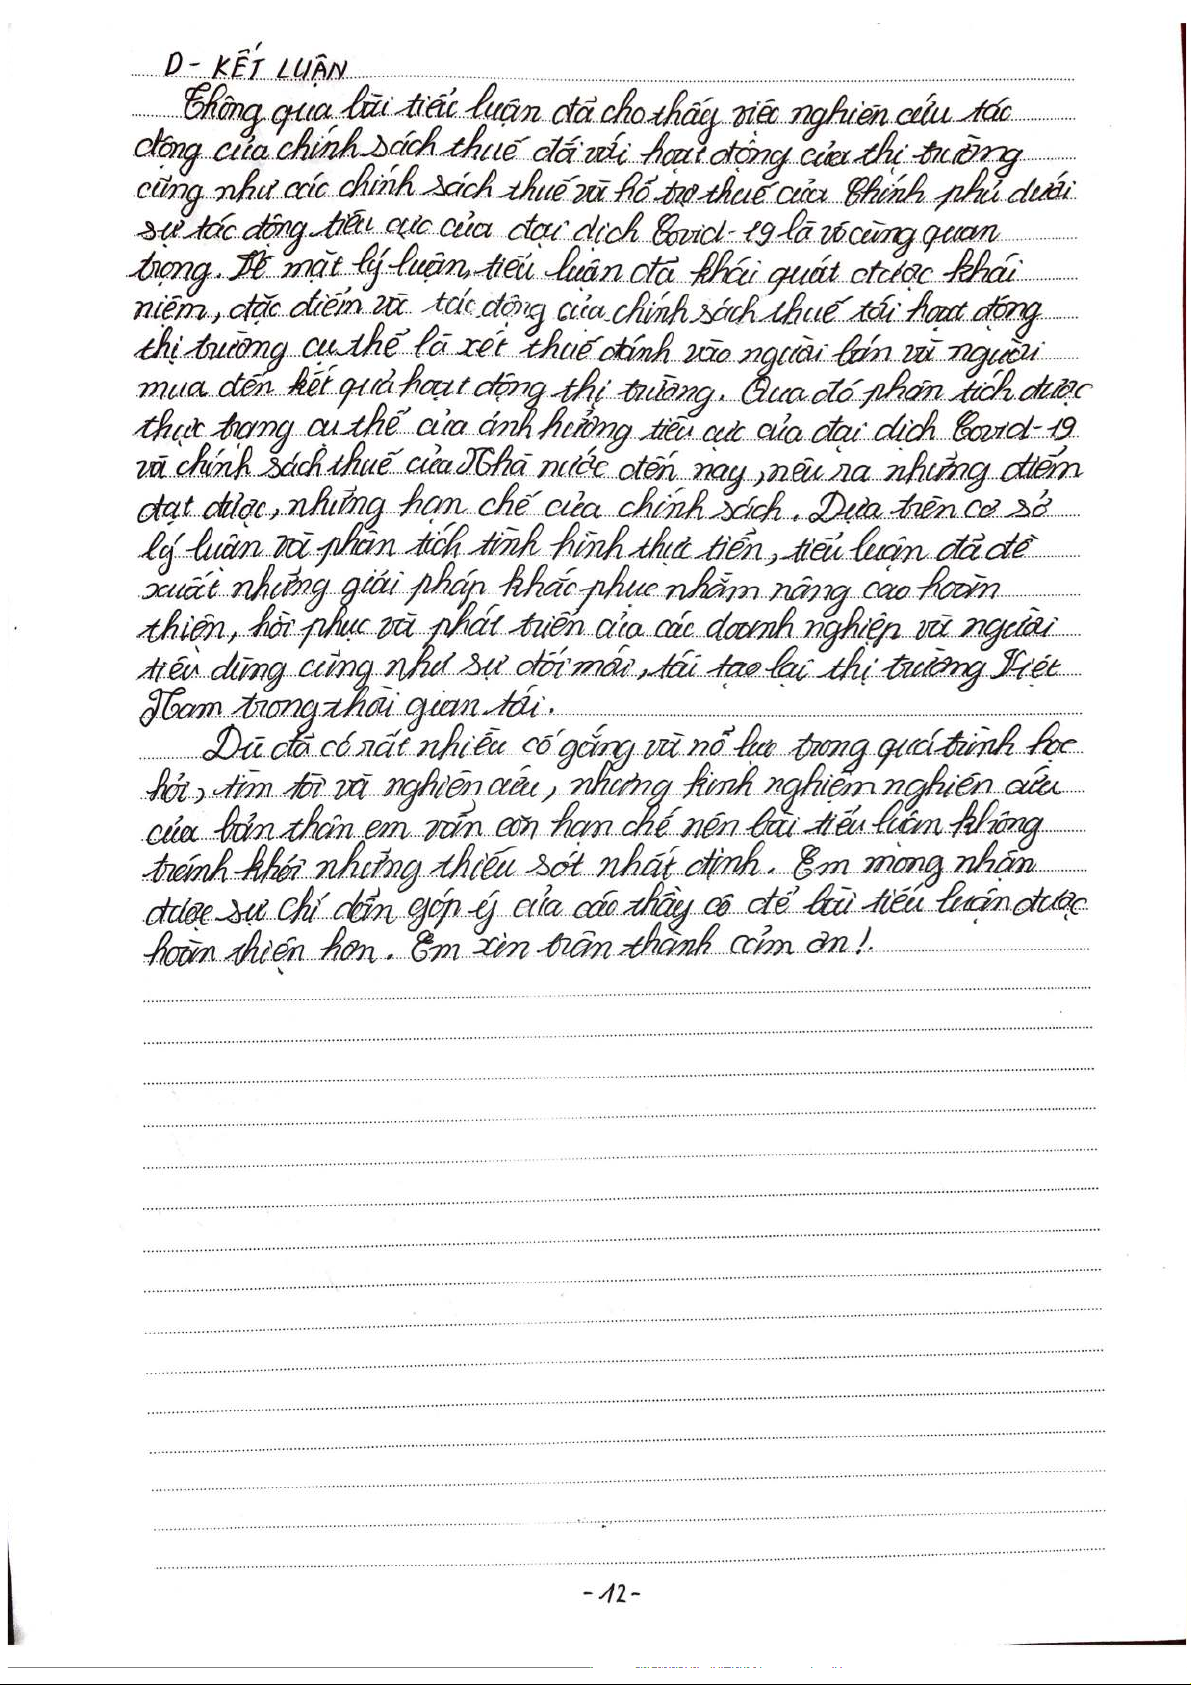 D - KẾT LUẬN
Thông qua bài tiểu luận đã cho thấy việc nghiên cứu tác
động của chính sách thuế đối với hoạt động của thị trường
cũng như các chính sách thuế và hỗ trợ thuế của Chính phủ dưới
sự tác động tiêu cực của đại dịch Covid-19 là vô cùng quan
trọng. Về mặt lý luận, tiểu luận đã khái quát được khái
niệm, đặc điểm và tác động của chính sách thuế tới hoạt động
thị trường cụ thể là xét thuế đánh vào người bán và người
mua đến kết quả hoạt động thị trường. Qua đó phân tích được
thực trạng cụ thể của ảnh hưởng tiêu cực của đại dịch Covid-19
và chính sách thuế của Nhà nước đến nay, nêu ra những điểm
đạt được, những hạn chế của chính sách. Dựa trên cơ sở
lý luận và phân tích tình hình thực tiễn, tiểu luận đã đề
xuất những giải pháp khắc phục nhằm nâng cao hoàn
thiện, hồi phục và phát triển của các doanh nghiệp và người
tiêu dùng cũng như sự đổi mới, tái tạo lại thị trường Việt
Nam trong thời gian tới.
Dù đã có rất nhiều cố gắng và nỗ lực trong quá trình học
hỏi, tìm tòi và nghiên cứu, nhưng kinh nghiệm nghiên cứu
của bản thân em vẫn còn hạn chế nên bài tiểu luận không
tránh khỏi những thiếu sót nhất định. Em mong nhận
được sự chỉ dẫn góp ý của các thầy cô để bài tiểu luận được
hoàn thiện hơn. Em xin trân thành cảm ơn!.
-12-